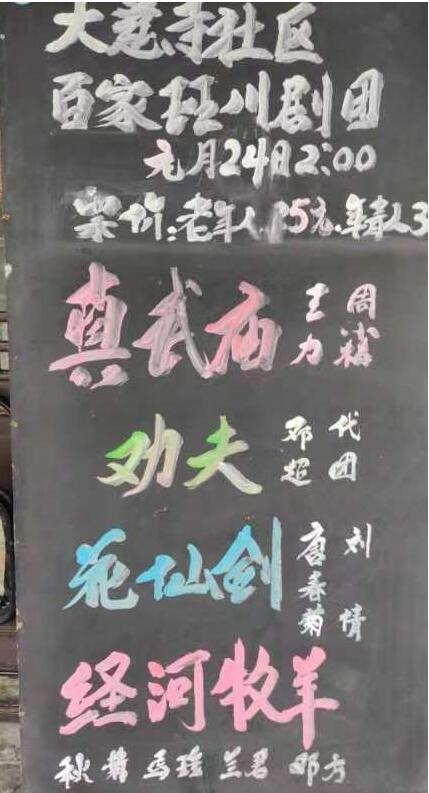 大慈寺社区
百家班川剧团
元月24日2:00
价:老年人25元.年青人3
真武庙 王力 周
劝夫 邓超 代团
花仙剑 唐春菊 刘情
经河牧羊
秋 马 兰君 方